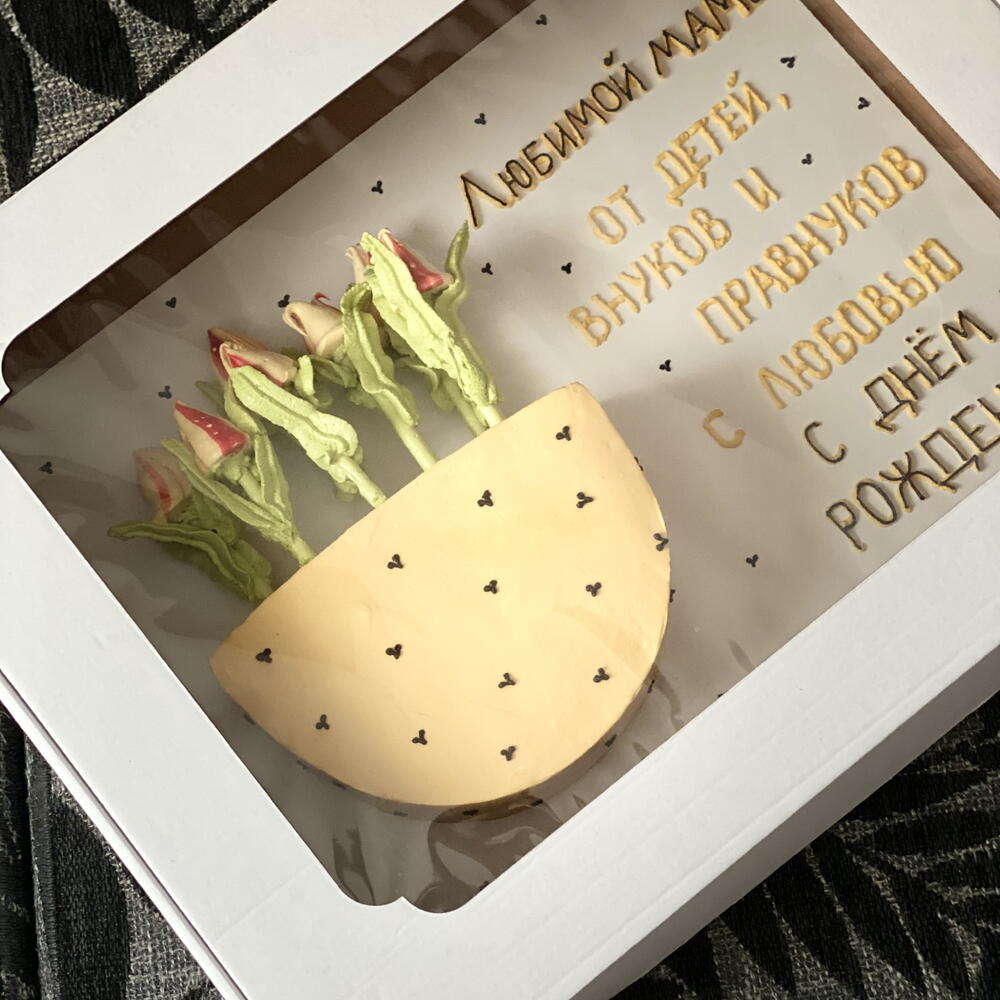 ЛЮБИМОЙ МАМЕ
ОТ ДЕТЕЙ,
ВНУКОВ И
ПРАВНУКОВ
С ЛЮБОВЬЮ
С ДНЁМ
РОЖДЕН